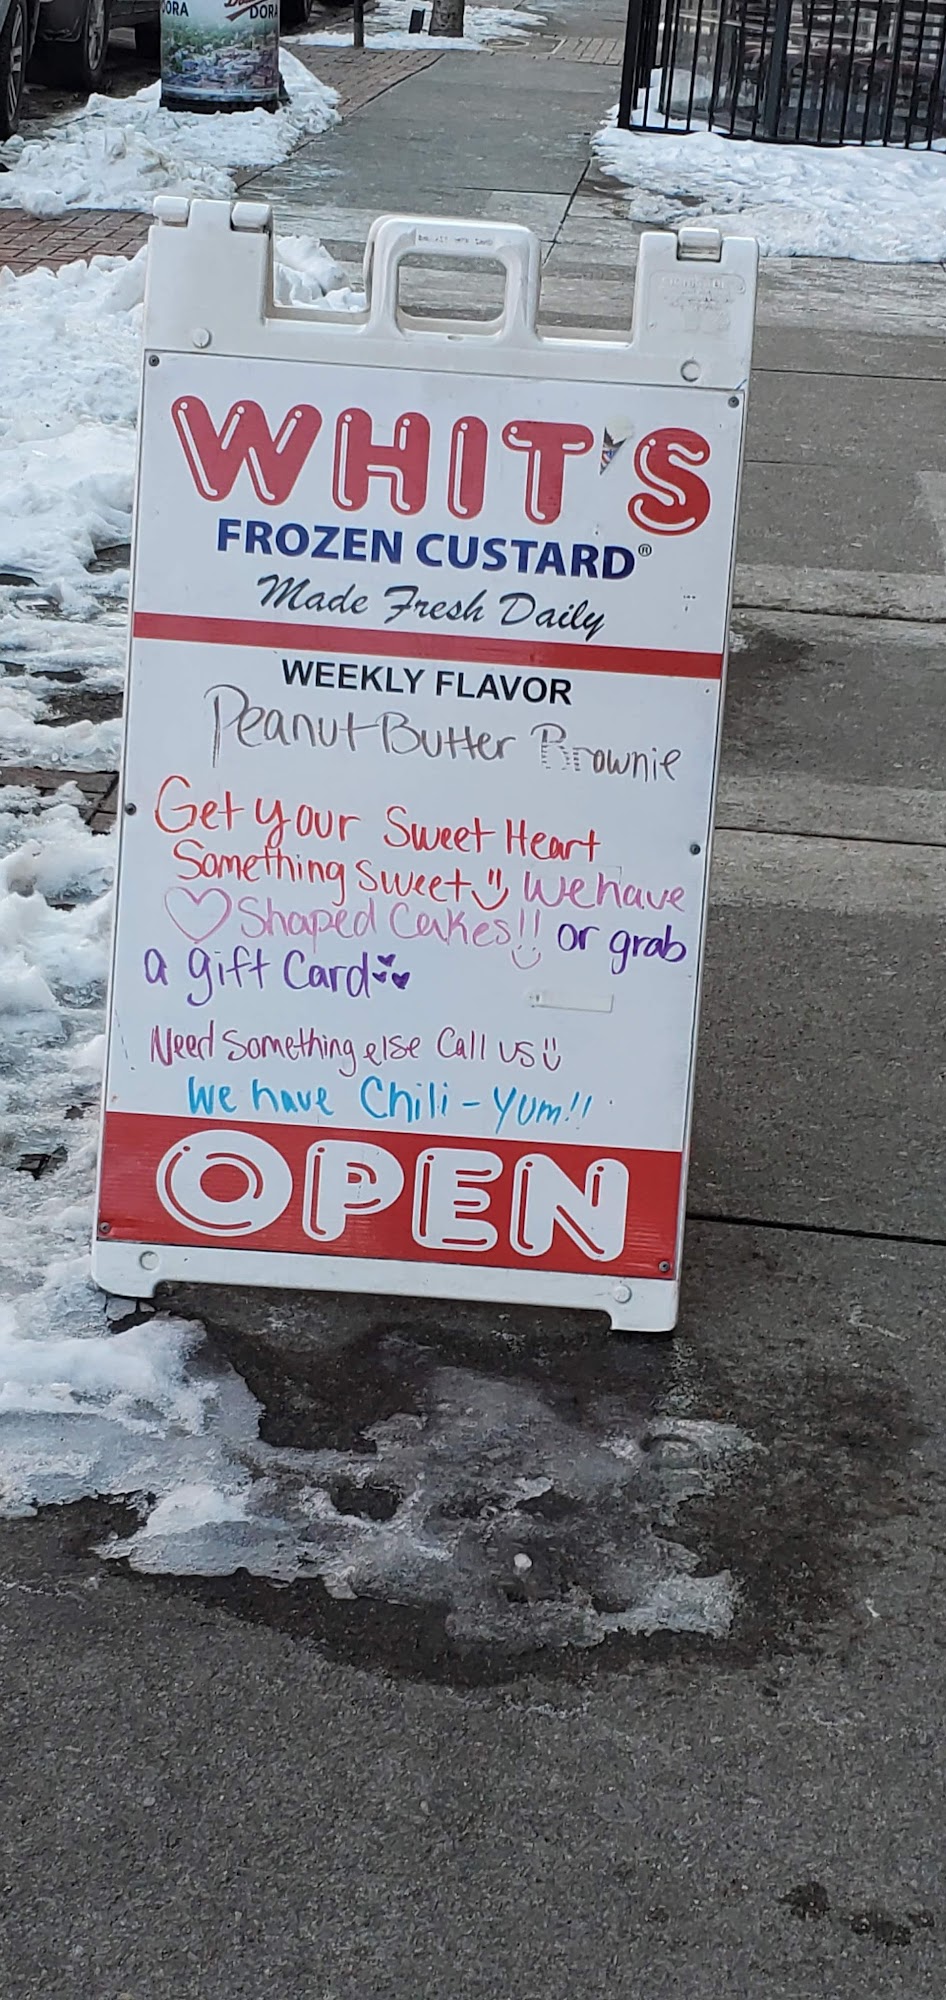 DORA
DORA
WHIT'S
FROZEN CUSTARD®
Made Fresh Daily
WEEKLY FLAVOR
Peanut Butter Brownie
Get your Sweet Heart
Something Sweet We have
Shaped Cakes!! or grab
a gift Card
Need Something else Call us
We have Chili - Yum!!
OPEN